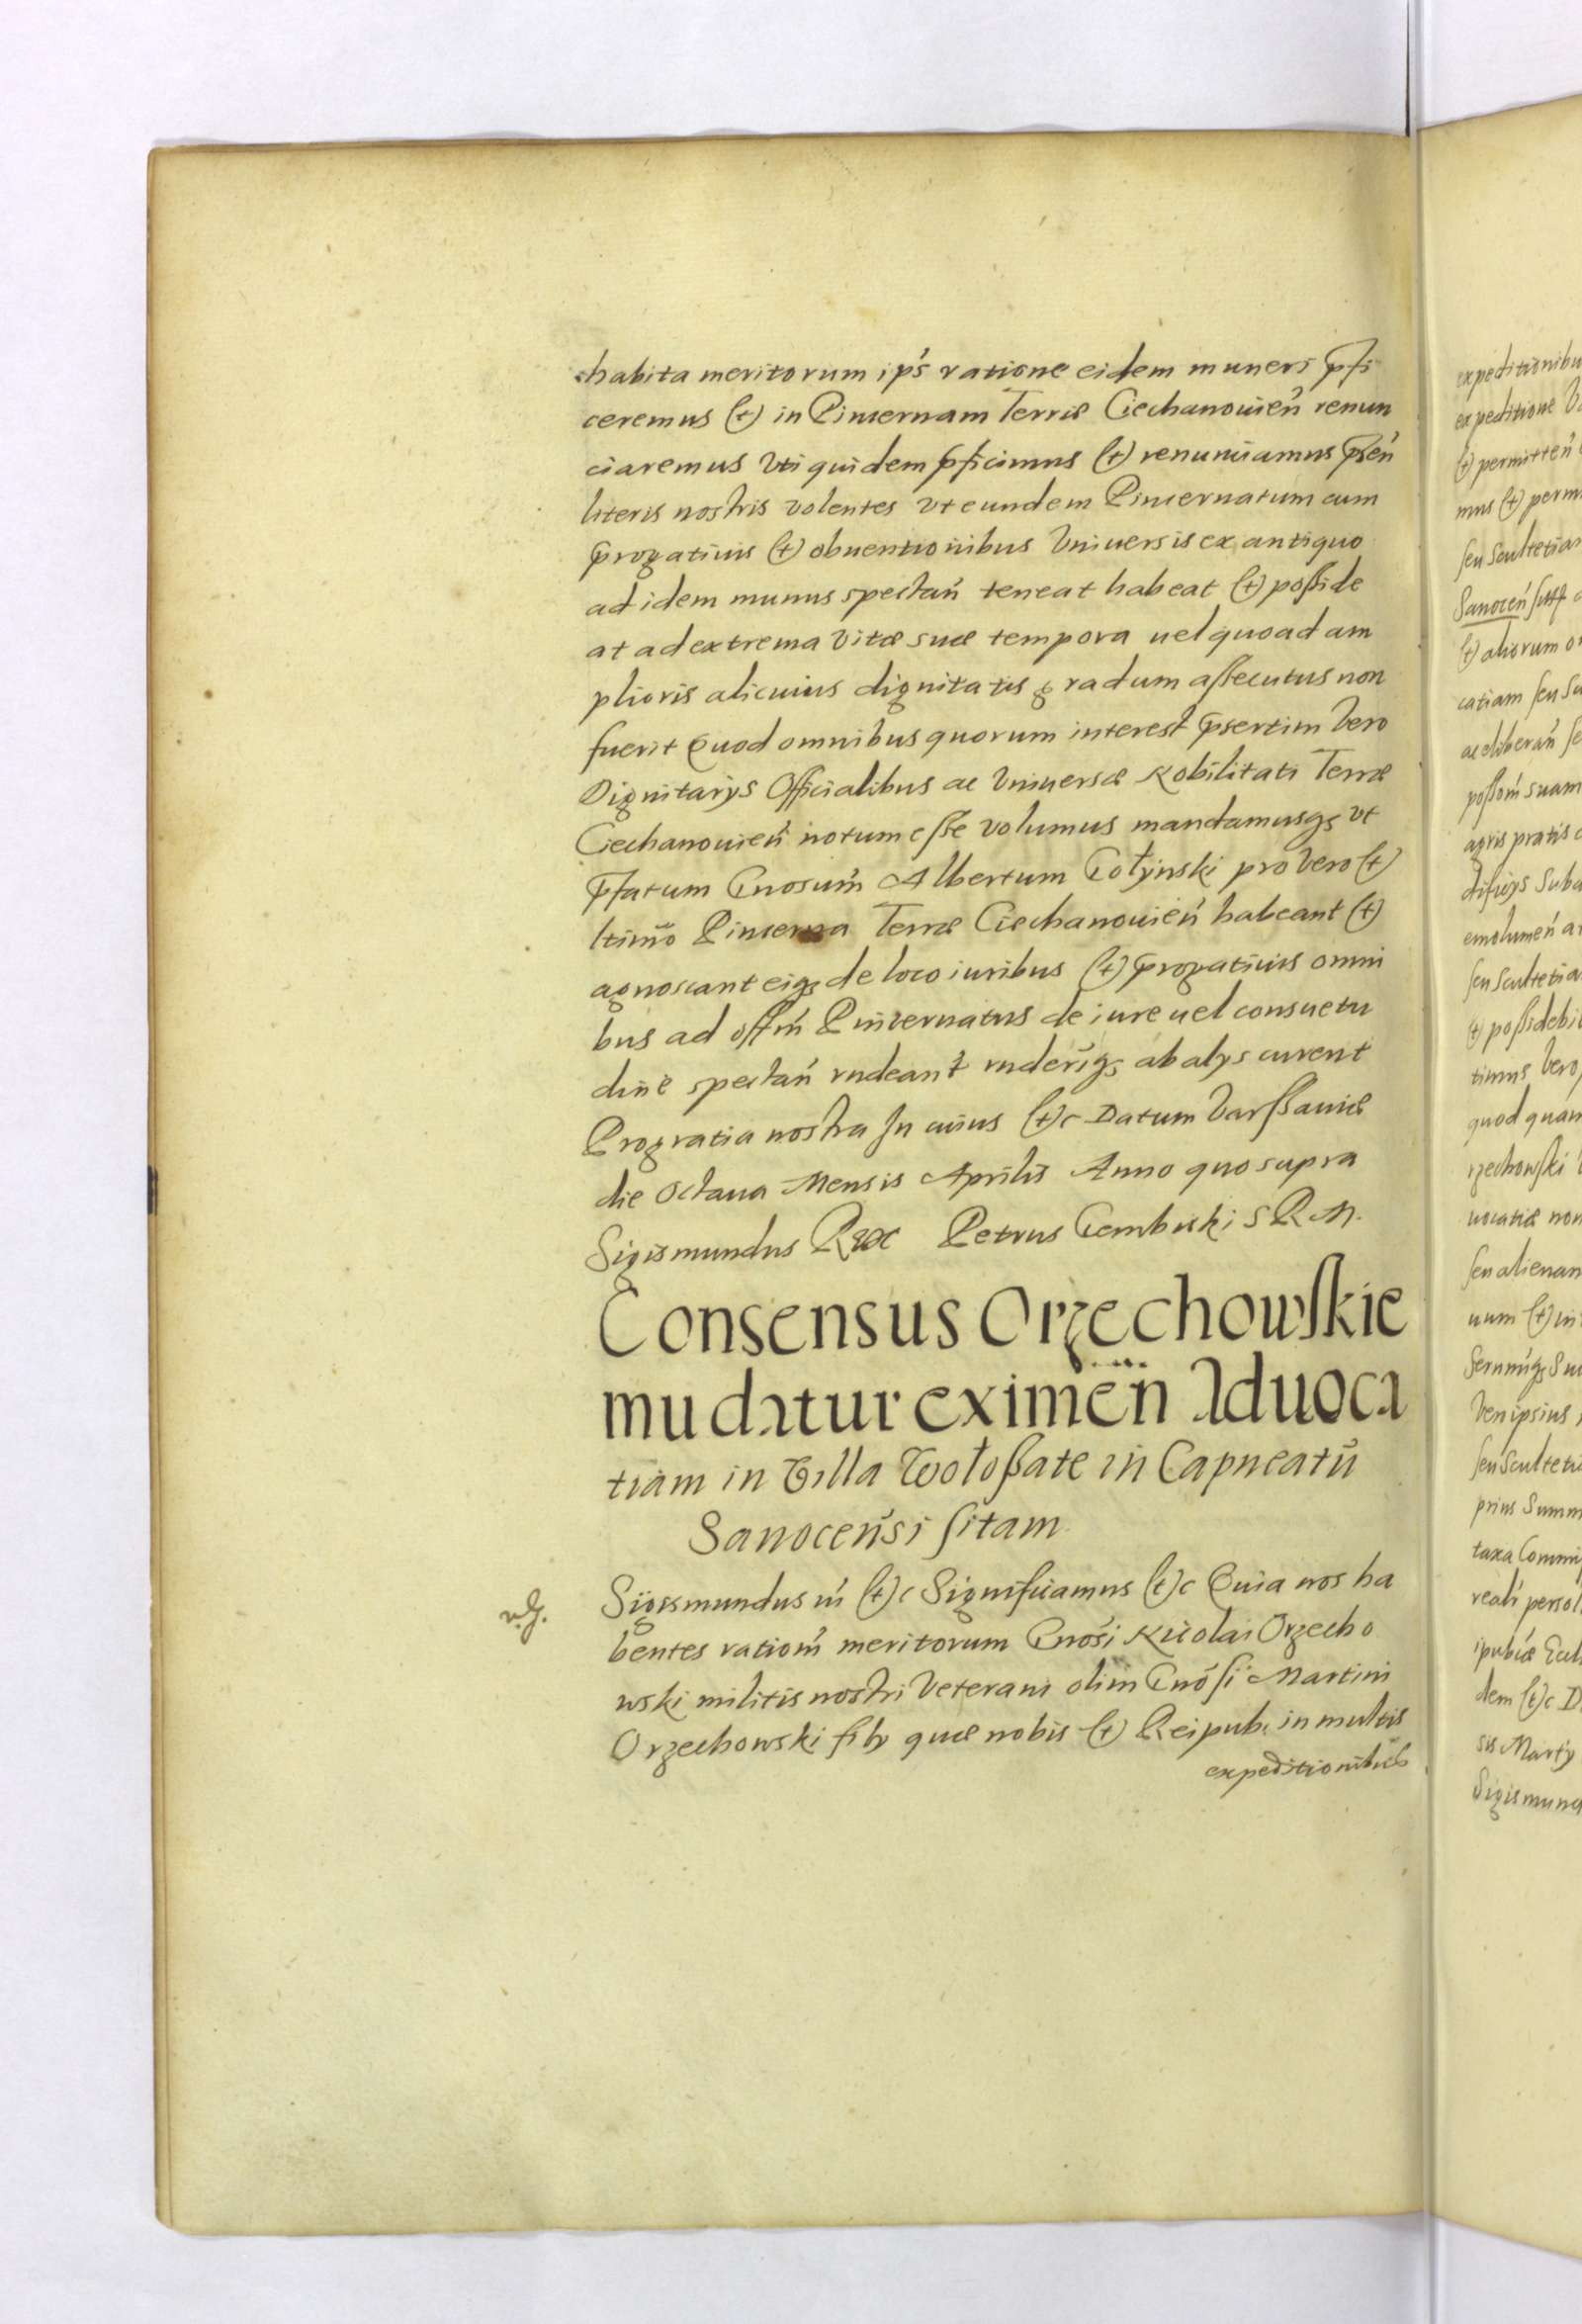 habita meritorum ip̃s ratione eidem muneri p̃fi
ceremus (et) in Pincernam Terræ Ciechanouień renun
ciaremus Vti quidem p̃ficimus (et) renunciamus p̃señ
literis nostris volentes vt eundem Pincernatum cum
p̃rogatiuis (et) obuentionibus Vniuersis ex antiquo
ad idem munus spectań teneat habeat (et) poßide
at ad extrema Vitæ suæ tempora uel quoad am
plioris alicuius dignitatis gradum aſſecutus non
fuerit Quod omnibus quorum interest p̃sertim Vero
Dignitarÿs Officialibus ac Vniuersæ Nobilitati Terræ
Ciechanouień notum eſſe volumus mandamusqȝ vt
p̃fatum Gnosum̃ Albertum Gołynski pro Vero (et)
ltimo Pincerna Terræ Ciechanouień habeant (et)
agnoscant eiqȝ de loco iuribus (et) p̃rogatiuis omni
bus ad offm̃ Pincernatus de iure uel consuetu
dine spectań rndeant rnderiqȝ ab alÿs curent
Pro gratia nostra In cuius (et)c Datum Varſſauiæ
die Octaua Mensis Aprilis Anno quo supra
Sigismundus Rex Petrus Gembicki S R M.
Consensus Orzechowſkie
mu datur eximeñ Aduoca
tiam in Villa Wołoſſate in Capneatũ
Sanoceńsi ſitam
Sigismundus m̃ (et)c Significamus (et)c Quia nos ha
bentes ratiom̃ meritorum Gnosi Nicolai Orzecho
wski militis nostri Veterani olim Gnoſi Martini
Orzechowski filÿ quæ nobis (et) Reipub: in multis
expeditionibus
expeditionibu
expeditione
(et) permitteń
mus (et) perm
ſeu Scultetia
Sanoceń
(et) aliorum
catiam ſeu
ac liberań
poſſom̃ suam
agris pratis
dificÿs
emolumeń
ſeu Scultetia
(et) poſſidebi
timus Vero
quod
rzechowſki
uocatiæ non
ſeu alienan
uum (et) in
Sigismund